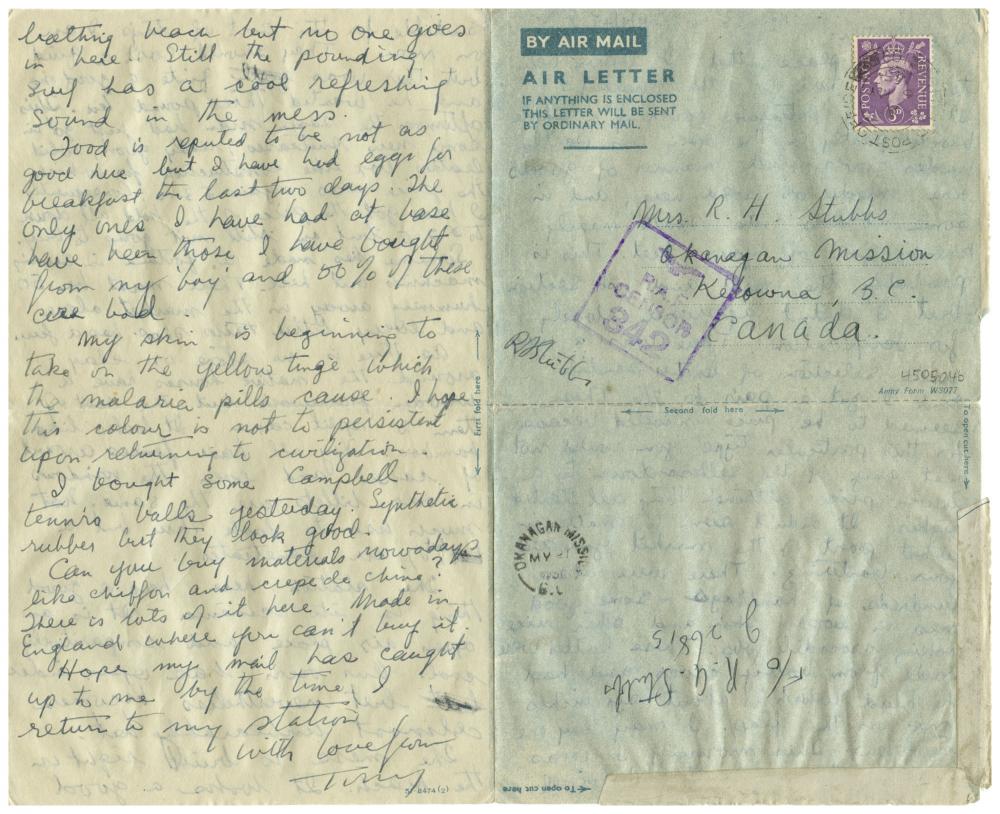 bathing beach but no one goes
in here. Still the pounding
surf has a cool refreshing
sound in the mess.
Food is reputed to be not as
good here but I have had eggs for
breakfast the last two days. The
only ones I have had at base
have been those I have bought
from my 'boy' and 50% of these
are bad
My skin is beginning to
take on the yellow tinge which
the malaria pills cause. I hope
this colour is not to persistent
upon returning to civilization.
I bought some Campbell
tennis balls yesterday. Synthetic
rubber but they look good.
Can you buy materials nowadays
like chiffon and crepe de chine?
There is lots of it here. Made in
England where you can't buy it.
Hope my mail has caught
up to me by the time I
return to my station
with love from
Tony
51-8474 (2)
First fold here
BY AIR MAIL
AIR LETTER
IF ANYTHING IS ENCLOSED
THIS LETTER WILL BE SENT
BY ORDINARY MAIL.
POSTAGE REVENUE
3D
POST
Mrs. R. H. Stubbs
Okanagan Mission
Kelowna, B.C.
Canada.
R.A.F.
CENSOR
342
RGStubbs
4505046
Army Form W3077
Second fold here
To open cut here
OKANAGAN MISSION
MY 21
B.C.
F/O R. G. Stubbs
J 26815
To open cut here